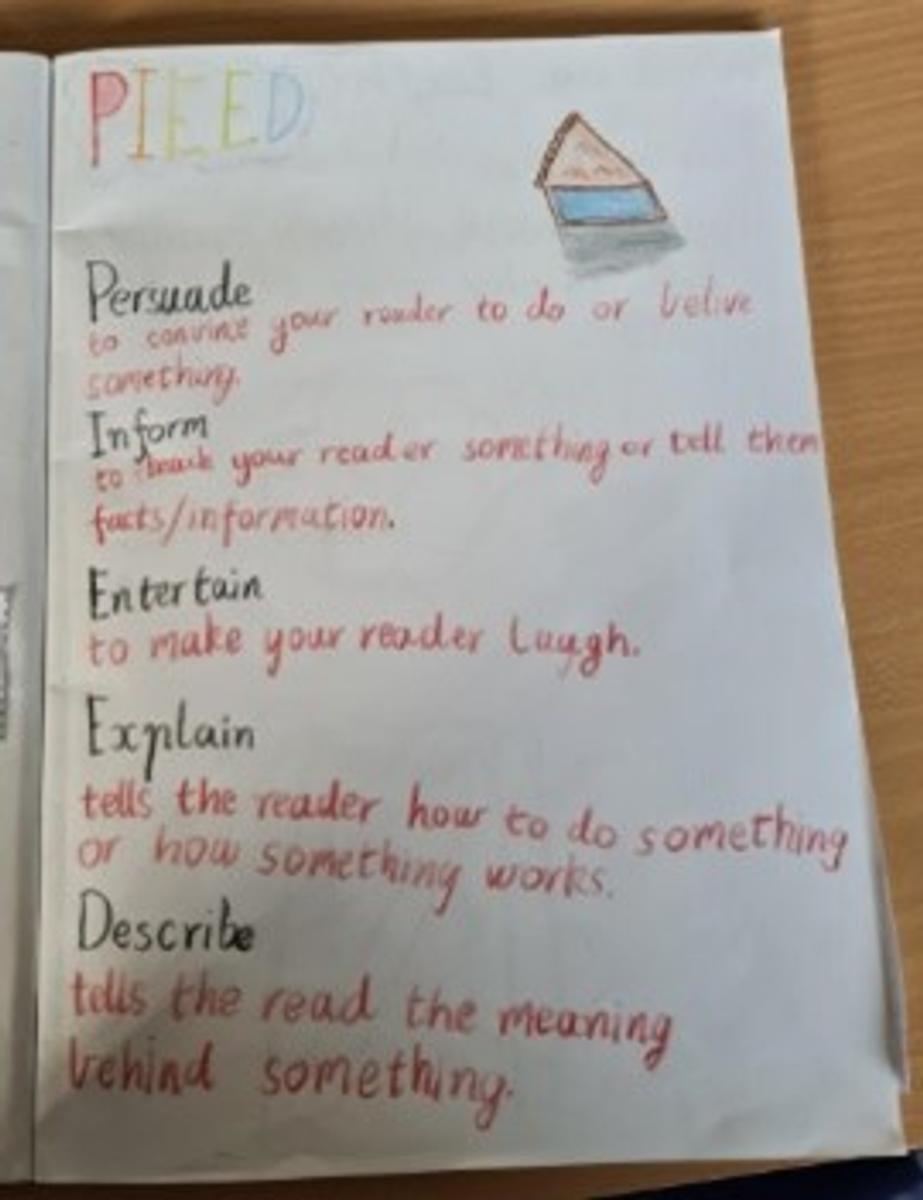 PIEED
Persuade
to convince your reader to do or belive
something.
Inform
to teach your reader something or tell them
facts/information.
Entertain
to make your reader laugh.
Explain
tells the reader how to do something
or how something works.
Describe
tells the read the meaning
behind something.